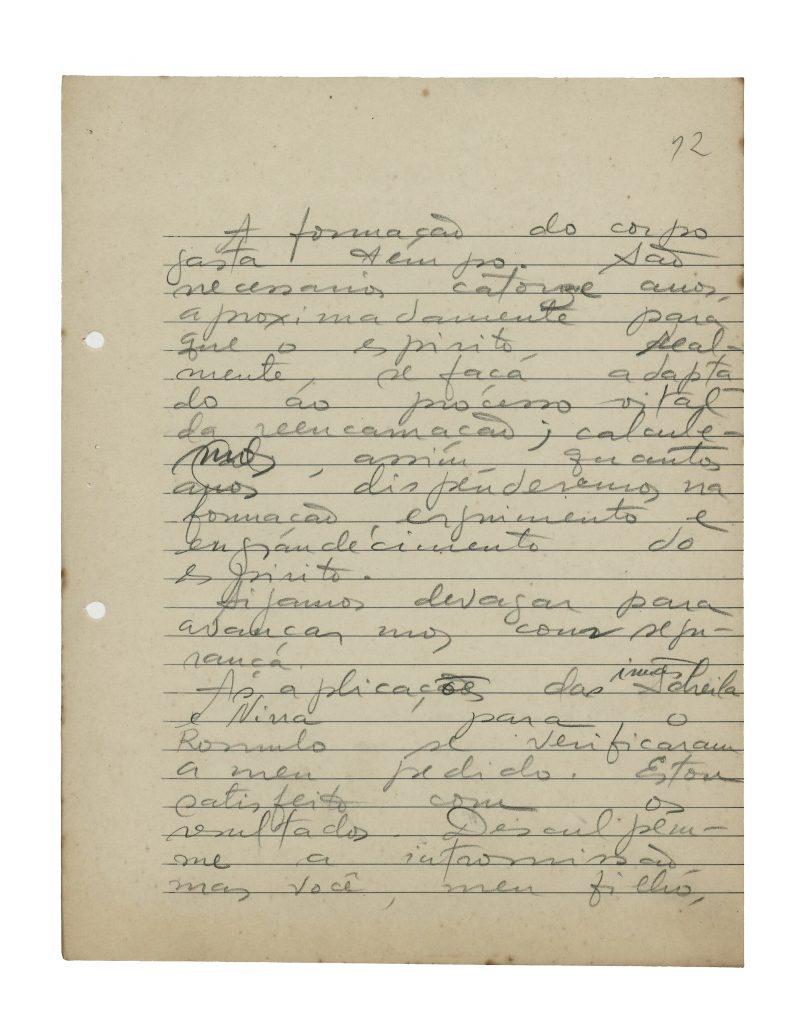 12
A formação do corpo
gasta tempo. São
necessarios catorze anos,
aproximadamente para
que o espirito real-
mente, se faça adapta
do ao processo vital
da reencarnação; calcule-
mos, assim, quantos
anos dispenderemos na
formação, erguimento e
engrandecimento do
espirito.
Sijamos devagar para
avançarmos com segu-
rança.
As aplicações das irmãs Scheila
e Nina, para o
Romulo se verificaram
a meu pedido. Estou
satisfeito com os
resultados. Desculpem-
me a intromissão
mas você, meu filho,